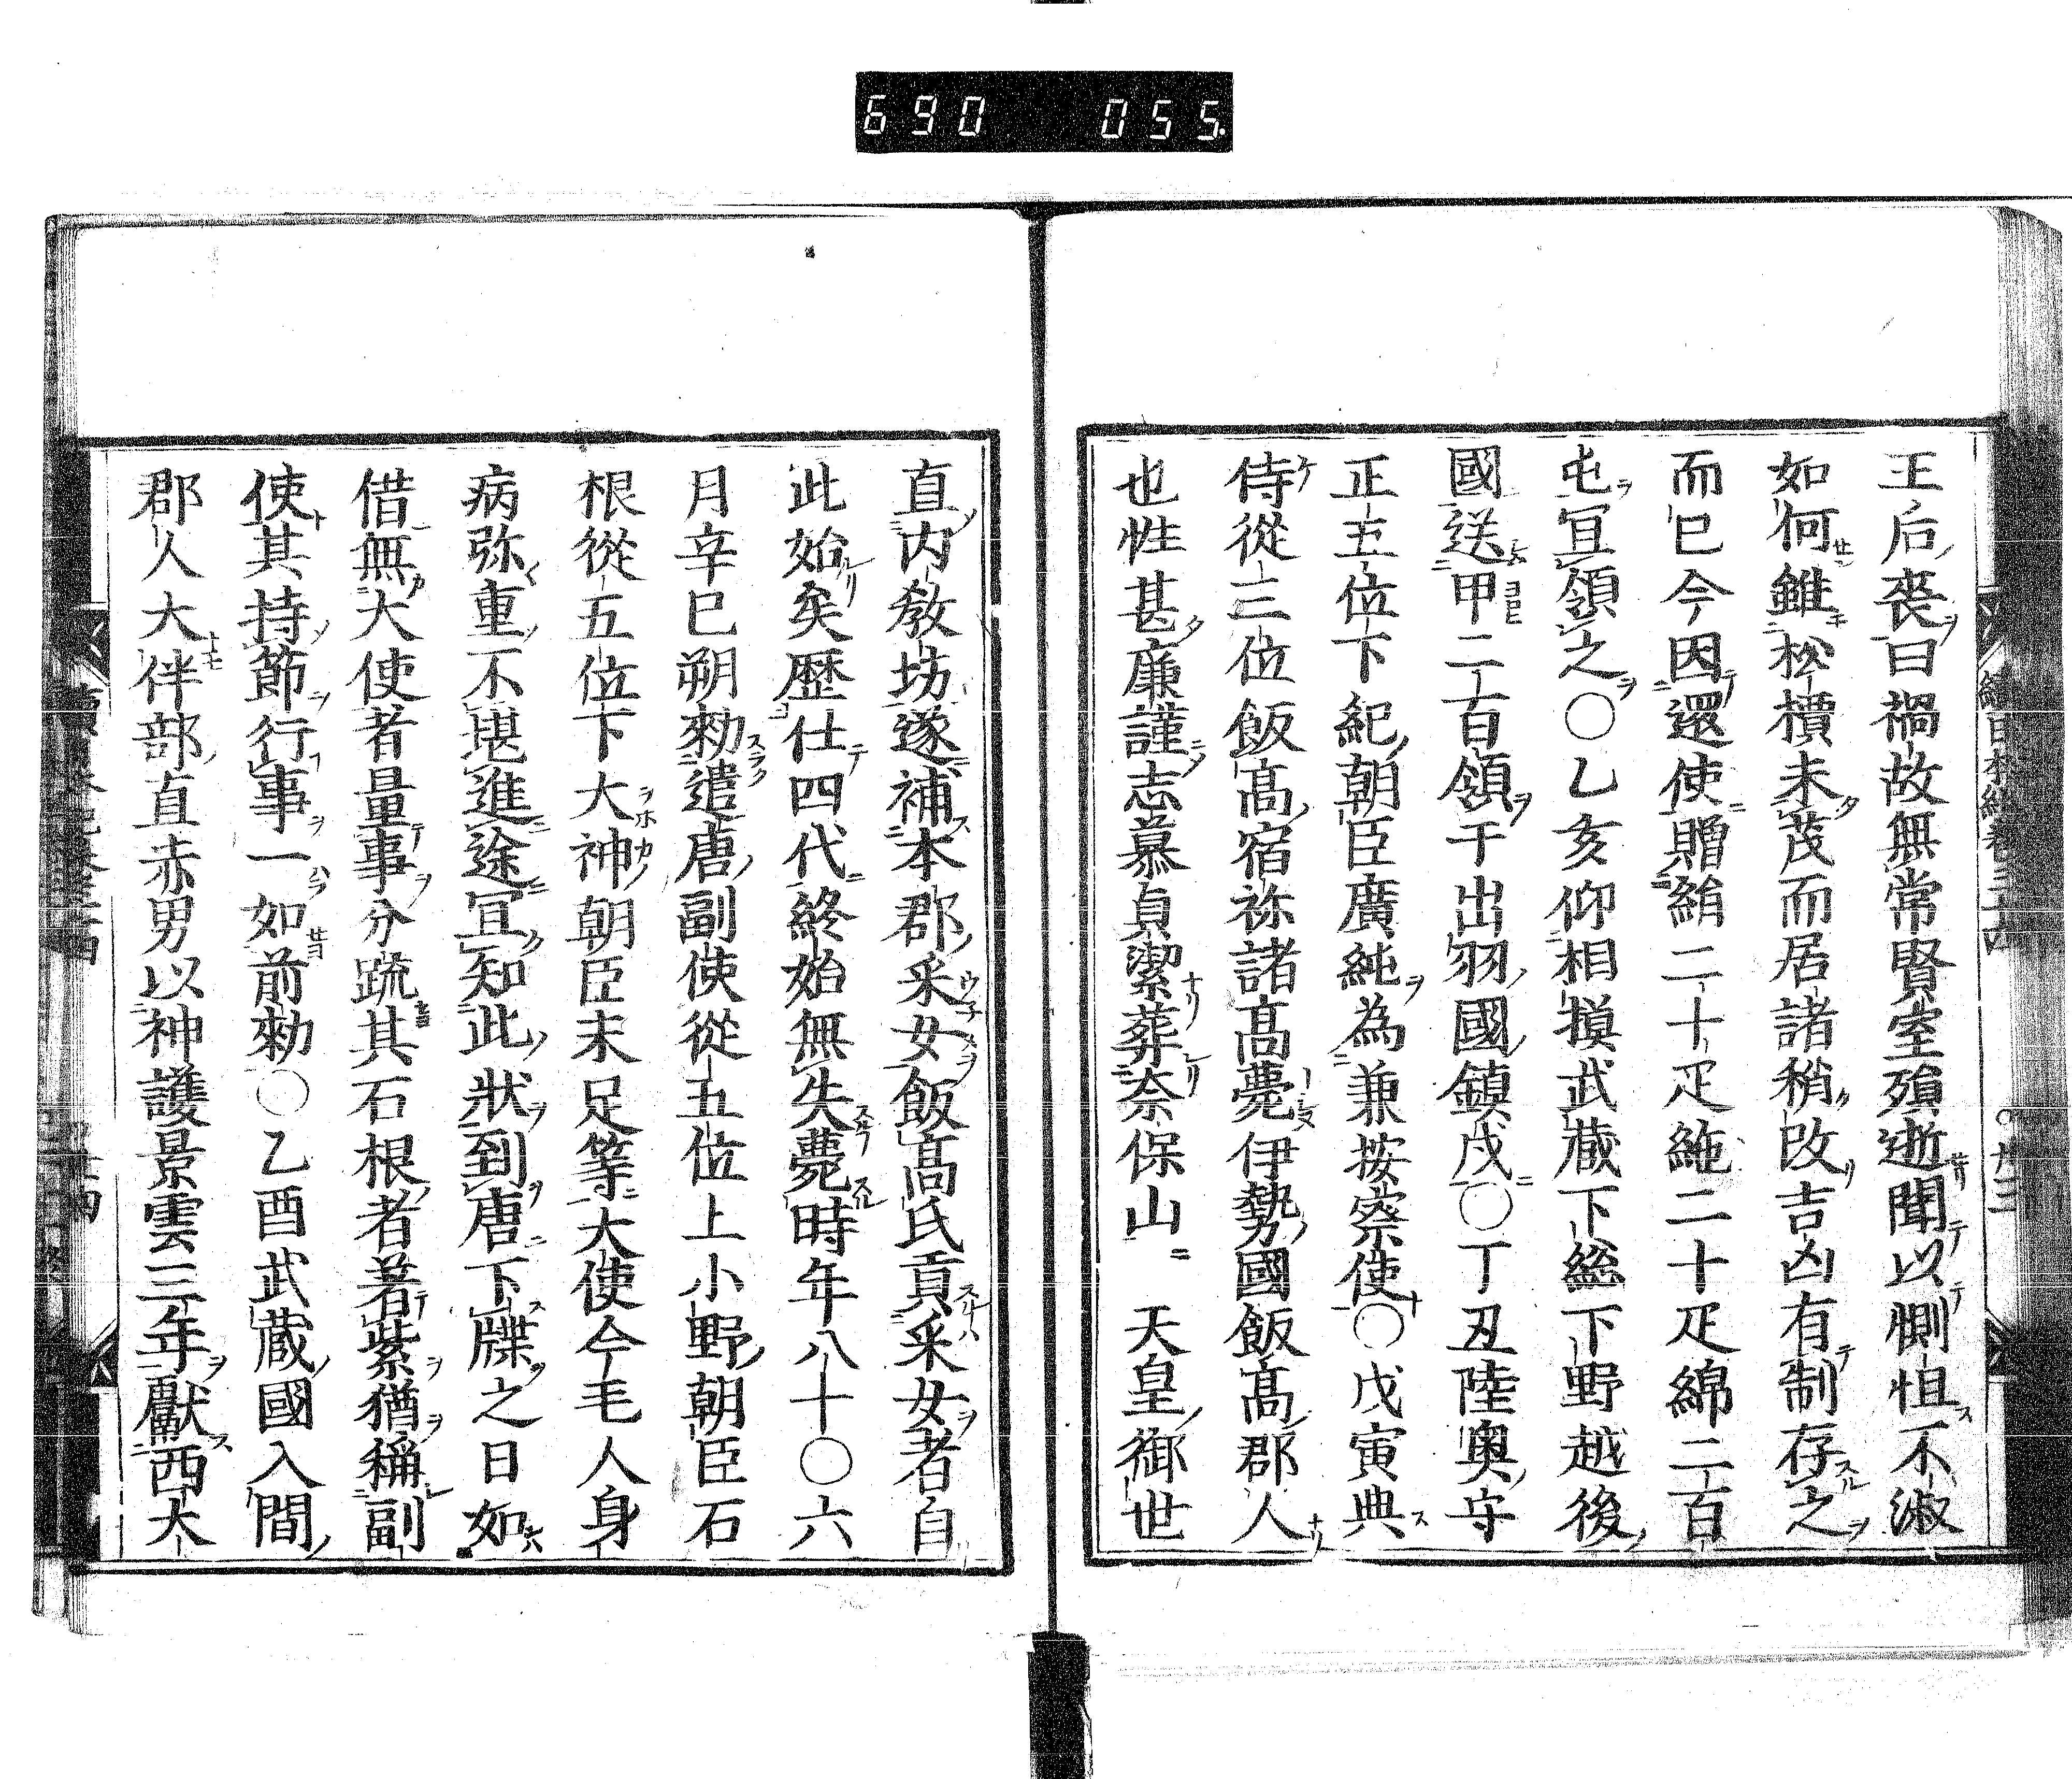 690 055
王后喪曰禍故無常賢室殞逝聞以惻怛不淑
如何雖松檟未茂而居諸稍改吉凶有制存之
而已今因還使贈絹二十疋絁二十疋綿二百
屯冝領之〇乙亥仰相摸武藏下総下野越後
國送甲二百領于出羽國鎮戍〇丁丑陸奥守
正五位下紀朝臣廣純為兼按察使〇戊寅典
侍從三位飯髙宿祢諸髙薨伊勢國飯髙郡人
也性甚廉謹志慕貞潔葬奈保山　天皇御世
直内教坊遂補本郡采女飯髙氏貢采女者自
此始矣歷仕四代終始無失薨時年八十〇六
月辛巳朔勑遣唐副使從五位上小野朝臣石
根從五位下大神朝臣末足等大使今毛人身
病弥重不堪進途冝知此狀到唐下牒之日如
借無大使者量事分疏其石根者著紫猶稱副
使其持節行事一如前勑〇乙酉武蔵國入間
郡人大伴部直赤男以神護景雲三年獻西大